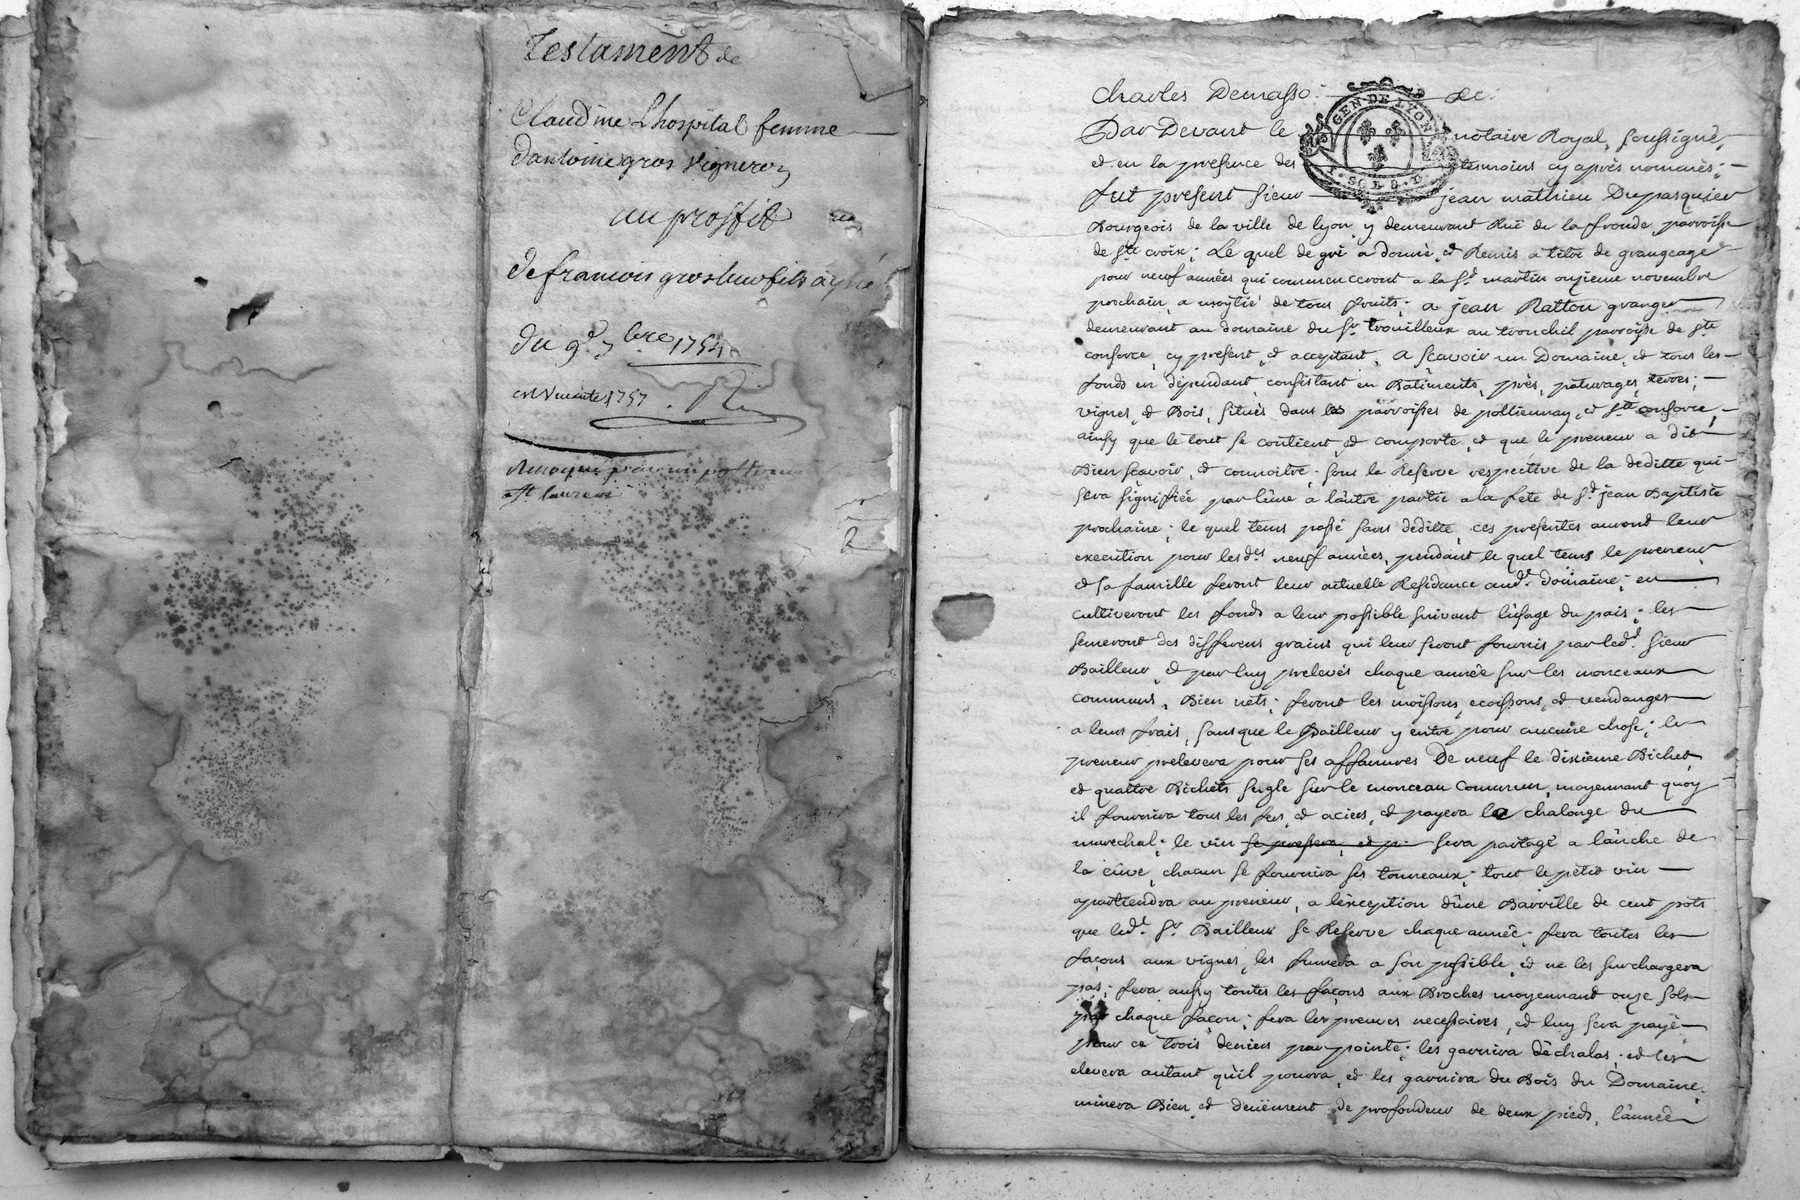 Testament de
Claudine Lhospital femme
dantoine gros vigneron
au proffit
de francois gros leur fils ayné
du 9e 7bre 1754
1757
st laurent
2
Charles Demasso
GEN. DE LYON
Par Devant le notaire Royal, soussigné,
et en la presence des temoins cy après nommés;
fut present sieur jean mathieu Dupasquier
Bourgeois de la ville de lyon, y demeurant Ruë de la fronde, parroisse
de Ste croix; Le quel de gré a donné, et Remis a titre de grangeage
pour neuf années qui commenceront a la St martin onzieme novembre
prochain, a moytié de tous fruits; a jean Ratton granger
demeurant au domaine du Sr trouilleux au tronchil parroisse de Ste
consorce, cy present, et acceptant, a scavoir un Domaine, et tous les
fonds en dépendant, consistant en Batiments, près, paturages, terres;
vignes, et Bois, situés dans les parroisses de pollionnay, et Ste consorce,
ainsy que le tout se contient, et comporte, et que le preneur a dit
Bien scavoir, et connoitre. sous la Reserve respective de la deditte qui
sera signiffiée par l'une à l'autre partie a la fete de St jean Baptiste
prochaine; le quel tems passé sans deditte, ces presentes auront leur
execution pour lesdes neuf années, pendant le quel tems le preneur
et sa famille feront leur actuelle Residance audt domaine; en
cultiveront les fonds a leur possible suivant l'usage du pais; les
semeront des differens grains qui leur seront fournis par ledt sieur
Bailleur, et par luy prelevés chaque année sur les monceaux
communs, Bien nets; feront les moissons, ecossons, et vendanges
a leurs frais, sans que le Bailleur y entre pour aucune chose; le
preneur prelevera pour ses affanures De neuf le dixieme Bichet,
et quattre Bichets seigle sur le monceau commun, moyennant quoy
il fournira tous les fers, et aciers, et payera le chalonge du
marechal; le vin se pressera, et p. sera partagé a l'anche de
la cuve, chacun se fournira ses tonneaux; tout le petit vin
apartiendra au preneur, a l'exception d'une Barrille de cent pots
que ledt Sr Bailleur se Reserve chaque année; fera toutes les
façons aux vignes, les fumera a son possible, et ne les surchargera
pas; fera aussy toutes les façons aux Broches moyennant onze sols
par chaque façon; fera les preuves necessaires, et luy sera payé
pour ce trois deniers par pointe; les garnira d'échalas; et les
elevera autant qu'il pourra, et les garnira du Bois du Domaine.
minera Bien et deuëment de profondeur de deux pieds, l'année